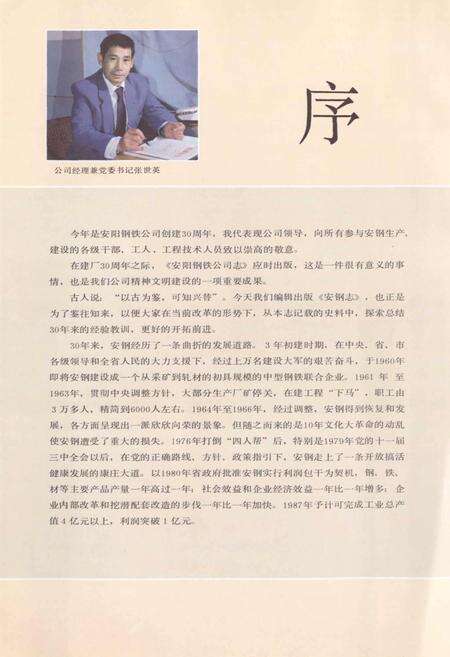 序
公司经理兼党委书记张世英
今年是安阳钢铁公司创建30周年，我代表现公司领导，向所有参与安钢生产、
建设的各级干部，工人，工程技术人员致以崇高的敬意。
在建厂30周年之际，《安阳钢铁公司志》应时出版，这是一件很有意义的事
情，也是我们公司精神文明建设的一项重要成果。
古人说：“以古为鉴，可知兴替”。今天我们编辑出版《安钢志》，也正是
为了鉴往知来，以便大家在当前改革的形势下，从本志记载的史料中，探索总结
30年来的经验教训，更好的开拓前进。
30年来，安钢经历了一条曲折的发展道路。3年初建时期，在中央、省、市
各级领导和全省人民的大力支援下，经过上万名建设大军的艰苦奋斗，于1960年
即将安钢建设成一个从采矿到轧材的初具规模的中型钢铁联合企业。1961年至
1963年，贯彻中央调整方针，大部分生产厂矿停关，在建工程“下马”，职工由
3万多人，精简到6000人左右。1964年至1966年，经过调整，安钢得到恢复和发
展，各方面呈现出一派欣欣向荣的景象。但随之而来的是10年文化大革命的动乱
使安钢遭受了重大的损失。1976年打倒“四人帮”后，特别是1979年党的十一届
三中全会以后，在党的正确路线，方针、政策指引下，安钢走上了一条开放搞活
健康发展的康庄大道。以1980年省政府批准安钢实行利润包干为契机，钢、铁、
材等主要产品产量一年高过一年；社会效益和企业经济效益一年比一年增多；企
业内部改革和挖潜配套改造的步伐一年比一年加快。1987年予计可完成工业总产
值4亿元以上，利润突破1亿元。